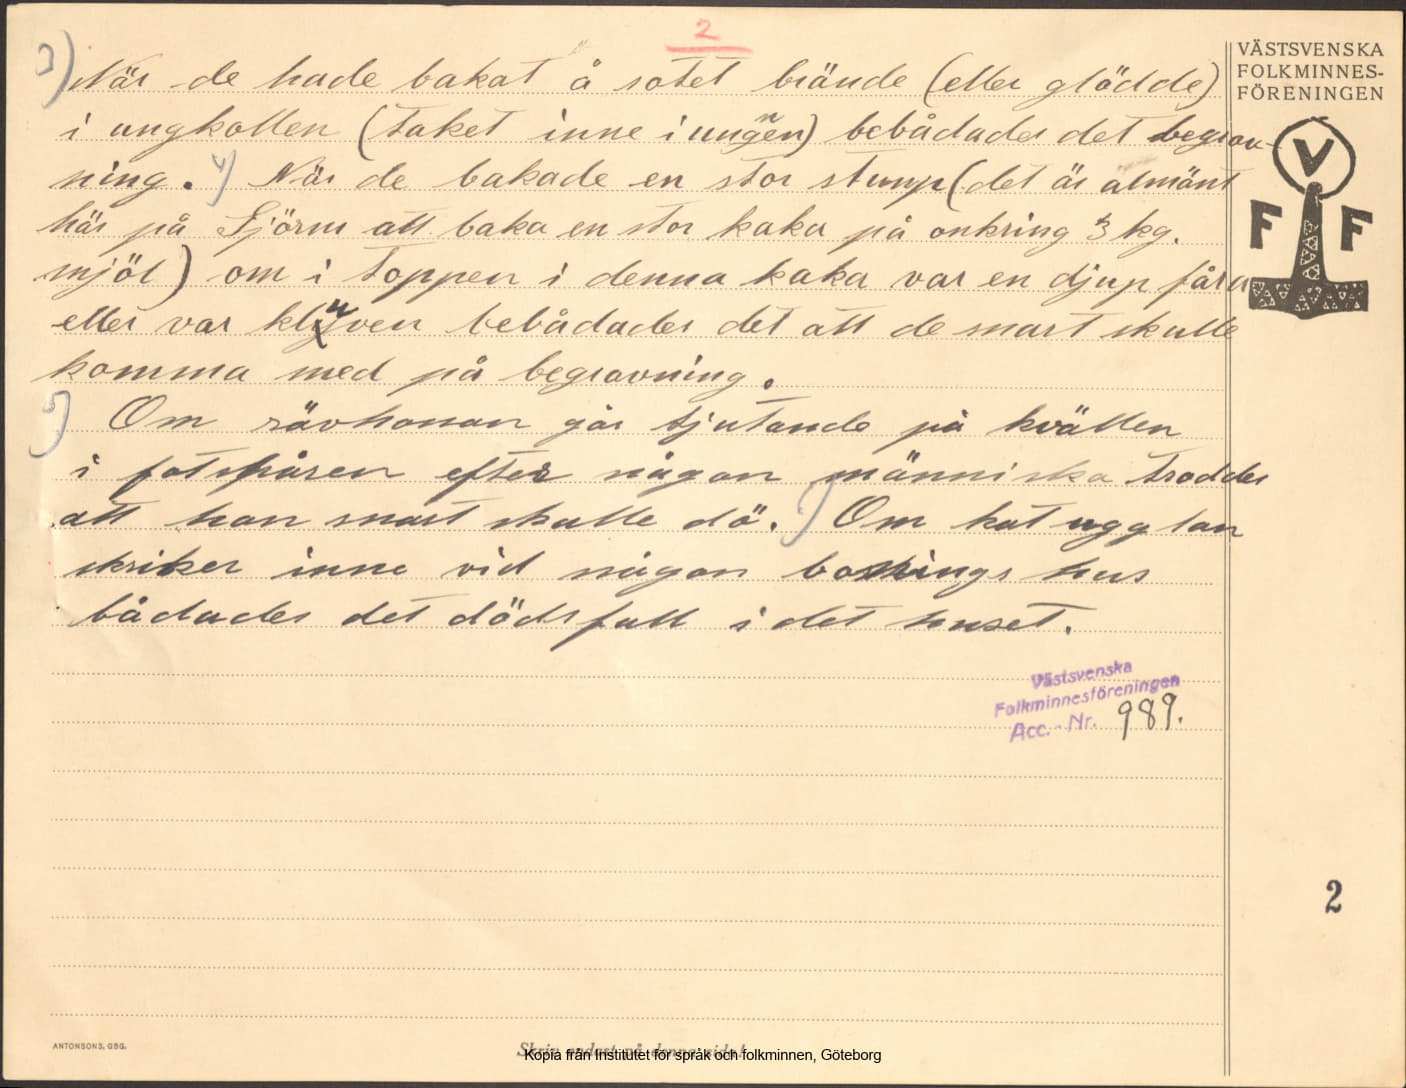 2
3) När de hade bakat å sotet brände (eller glödde)
i ungkollen (taket inne i ungnen) bebådades det begrav-
ning. 4) När de bakade en stor stump (det är almänt
här på Sjörm att baka en stor kaka på onkring 3 kg.
mjöl) om i toppen i denna kaka var en djup fåra
eller var kluven bebådades det att de snart skulle
komma med på begravning.
5) Om rävhonan går tjutande på kvällen
i fotspåren efter någon människa troddes
att han snart skulle dö. ) Om kat ugglan
skriker inne vid någon bonings hus
bådades det dödsfall i det huset.
VÄSTSVENSKA
FOLKMINNES-
FÖRENINGEN
V
F F
Västsvenska
Folkminnesföreningen
Acc. - Nr. 989.
2
ANTONSONS, GBG.
Skriv endast på denna sida!
Kopia från Institutet för språk och folkminnen, Göteborg